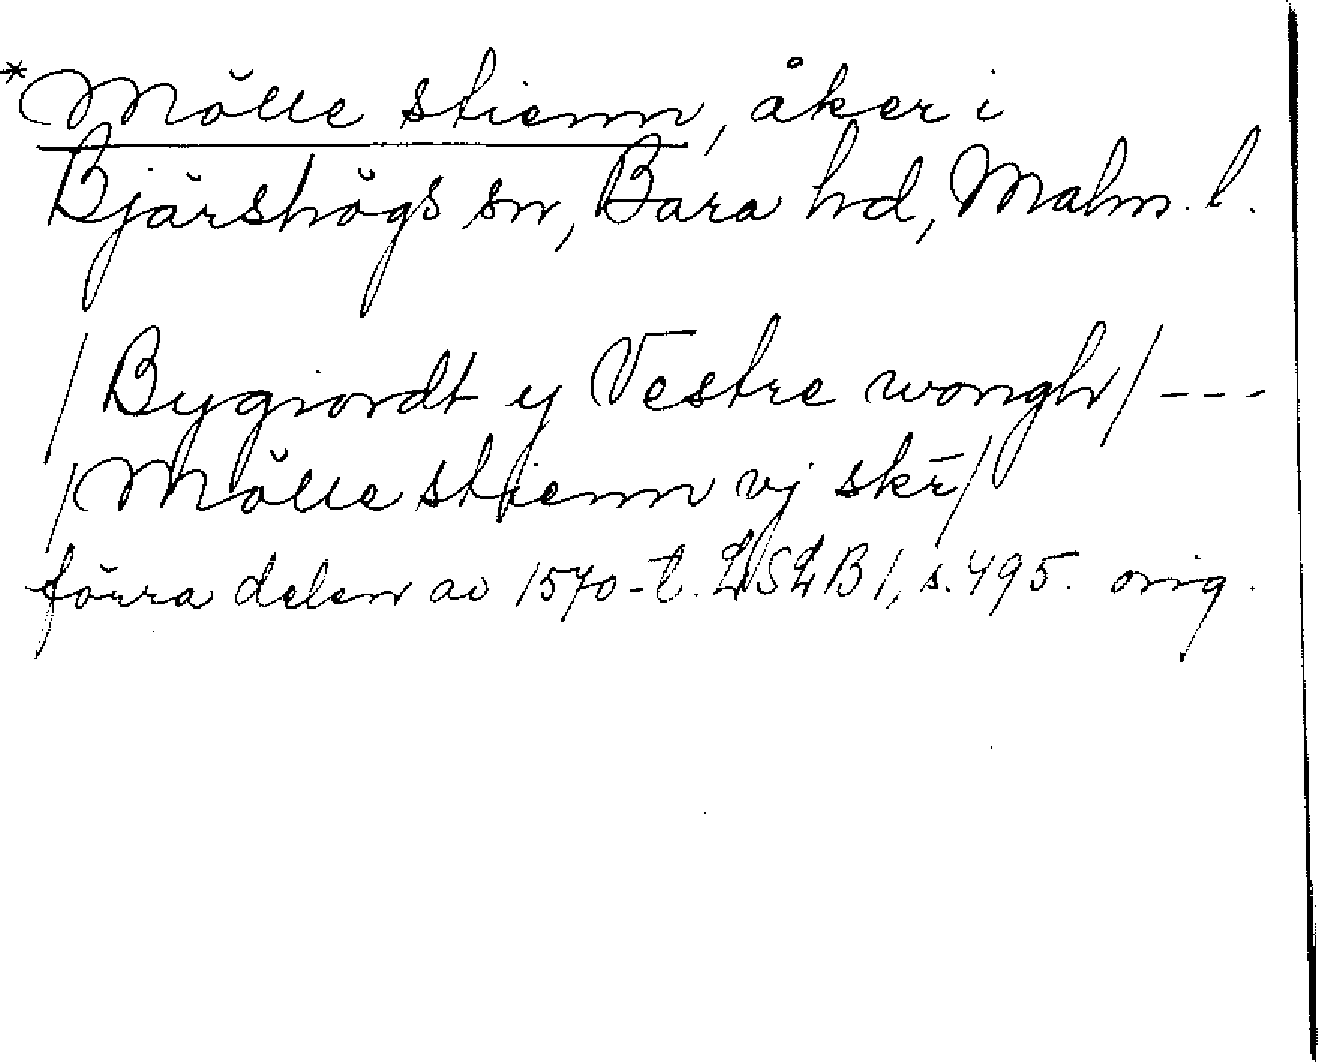 *Mölle stienn, åker i
Bjärshögs sn, Bara hd, Malm. l.
/Bygiordt y Vestre wongh/ ---
/Mölle stienn vj skr̄/
förra delen av 1570-t. LSLB 1, s. 495. orig.